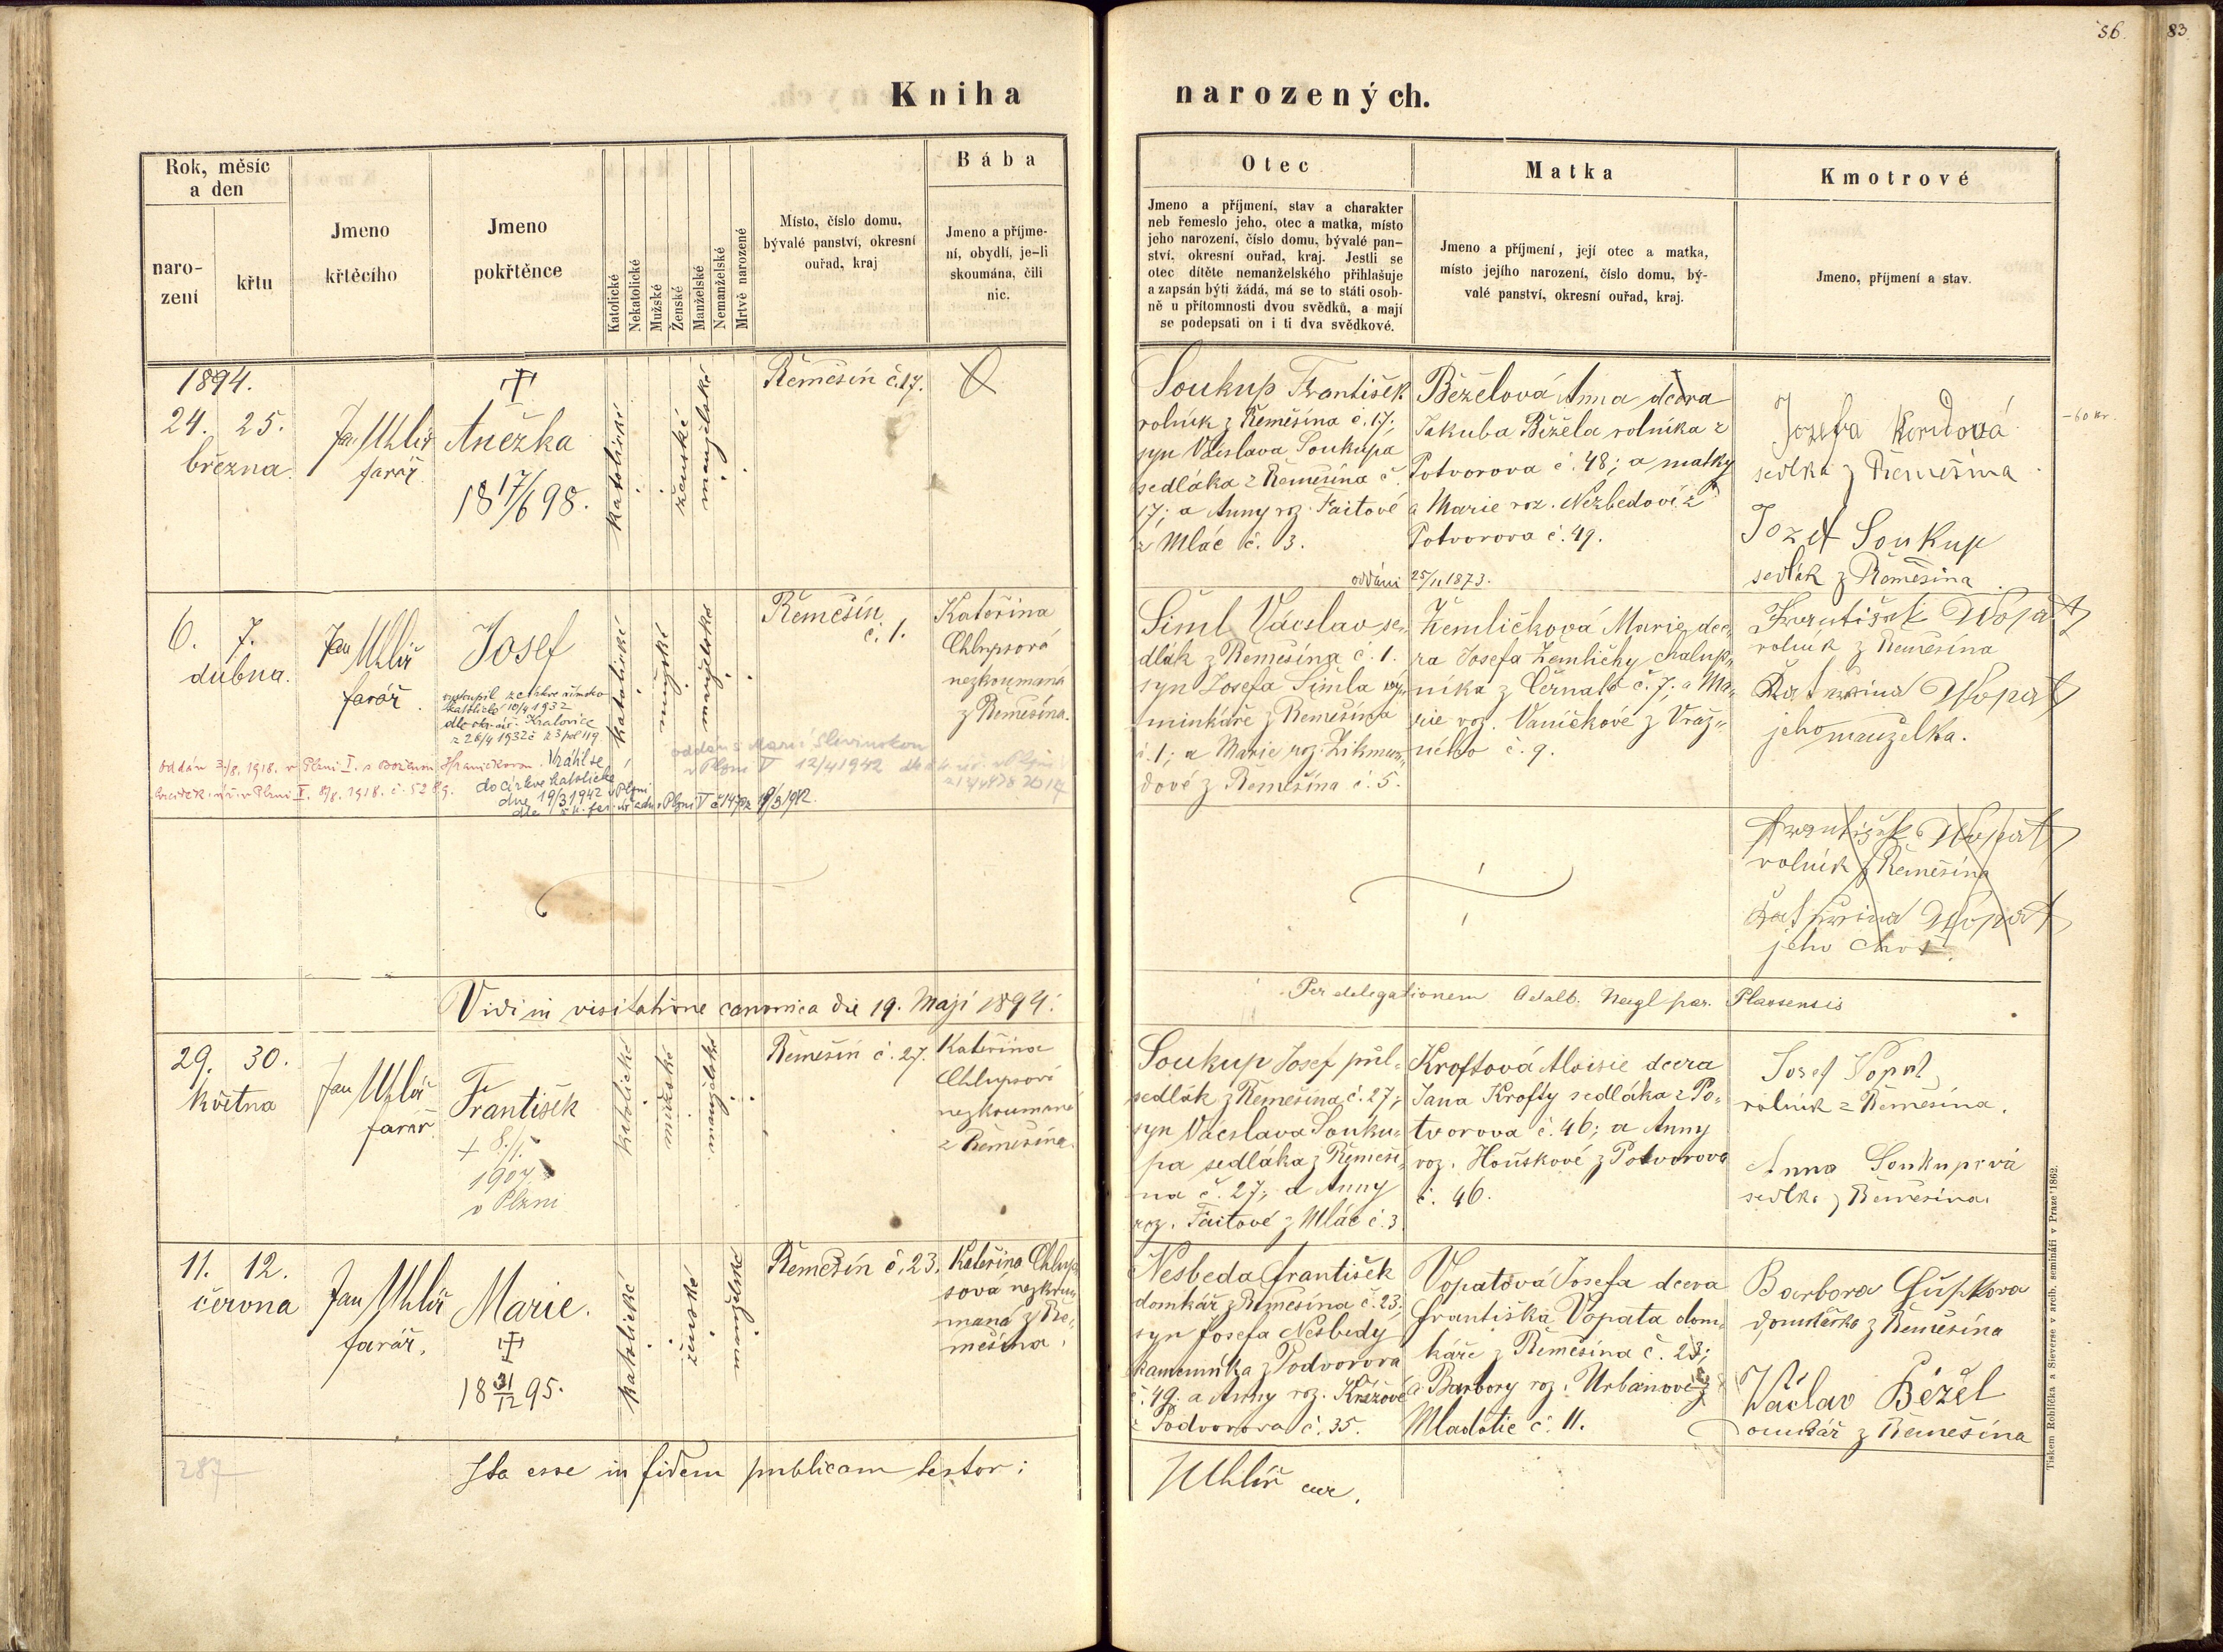 56.
83.
Kniha narozených.
Rok, měsíc
a den
naro-
zení
křtu
Jmeno
křtěcího
Jmeno
pokřtěnce
Katolické
Nekatolické
Mužské
Ženské
Manželské
Nemanželské
Mrtvě narozené
Místo, číslo domu,
bývalé panství, okresní
ouřad, kraj
Bába
Jmeno a příjme-
ní, obydlí, je-li
skoumána, čili
nic.
Otec
Jmeno a příjmení, stav a charakter
neb řemeslo jeho, otec a matka, místo
jeho narození, číslo domu, bývalé pan-
ství, okresní ouřad, kraj. Jestli se
otec dítěte nemanželského přihlašuje
a zapsán býti žádá, má se to státi osob-
ně u přítomnosti dvou svědků, a mají
se podepsati on i ti dva svědkové.
Matka
Jmeno a příjmení, její otec a matka,
místo jejího narození, číslo domu, bý-
valé panství, okresní ouřad, kraj.
Kmotrové
Jmeno, příjmení a stav.
1894.
24. 25.
března
Jan Uhlíř
farář.
Anežka
18 17/6 98.
katolické
ženské
manželské
Řemešín č. 17.
Soukup František
rolník z Řemešína č. 17;
syn Václava Soukupa
sedláka z Řemešína č.
17; a Anny roz. Faitové
z Mláč č. 3.
Běželová Anna dcera
Jakuba Běžela rolníka z
Potvorova č. 48; a matky
a Marie roz. Nezbedové z
Potvorova č. 49.
oddáni 25/11 1873.
Jozefa
sedlka z Řemešína
Jozef Soukup
sedlák z Řemešína
- 60 kr.
6. 7.
dubna.
Jan Uhlíř
farář.
Josef
vystoupil z církve římsko
katolické 10/4 1932
z 26/4 1932
Vrátil se
do církve katolické
dne 19/3 1942 v Plzni
katolické
mužské
manželské
Řemešín
č. 1.
Kateřina
Chlupsová
nezkoumaná
z Řemešína.
oddán s Marií
v Plzni V 12/4 1942
Šiml Václav se-
dlák z Řemešína č. 1.
syn Josefa Šimla vým-
minkáře z Řemešína
č. 1; a Marie roz. Zikmun-
dové z Řemešína č. 5.
Žemličková Marie, dce-
ra Josefa Žemličky chalup-
níka z Černat č. 7; a Ma-
rie roz. Vaníčkové z Vraž-
ného č. 9.
František Wopat
rolník z Řemešína
Kateřina Wopat
jeho manželka.
František Wopat
rolník z Řemešína
Kateřina Wopat
jeho choť.
Vidi in visitatione canonica die 19. Maji 1894.
Per delegationem Adalb. Nagl par. Plassensis
29. 30.
května
Jan Uhlíř
farář.
František
+ 8./1.
1907
v Plzni
katolické
mužské
manželské
Řemešín č. 27.
Kateřina
Chlupsová
nezkoumaná
z Řemešína.
Soukup Josef půl-
sedlák z Řemešína č. 27;
syn Václava Souku-
pa sedláka z Řemeší-
na č. 27; a Anny
roz. Faitové z Mláč č. 3.
Kroftová Aloisie dcera
Jana Krofty sedláka z Po-
tvorova č. 46; a Anny
roz. Houškové z Potvorova
č. 46.
Josef Vopat
rolník z Řemešína.
Anna Soukupová
sedlka z Řemešína.
11. 12.
června
Jan Uhlíř
farář.
Marie.
18 31/12 95.
katolické
ženské
manželské
Řemešín č. 23.
Kateřina Chlup-
sová nezkou-
maná z Ře-
mešína.
Nesbeda František
domkář z Řemešína č. 23;
syn Josefa Nesbedy
kamenníka z Podvorova
č. 49. a Anny roz. Křížové
z Podvorova č. 35.
Vopatová Josefa dcera
Františka Vopata dom-
káře z Řemešína č. 23;
a Barbory roz. Urbanové z
Mladotic č. 11.
Barbora Čupkova
domkářka z Řemešína
Václav Běžel
Domkář z Řemešína
287
Ita esse in fidem publicam testor:
JUhlíř cur.
Tiskem Rohlíčka a Sieverse v arcib. semináři v Praze 1862.